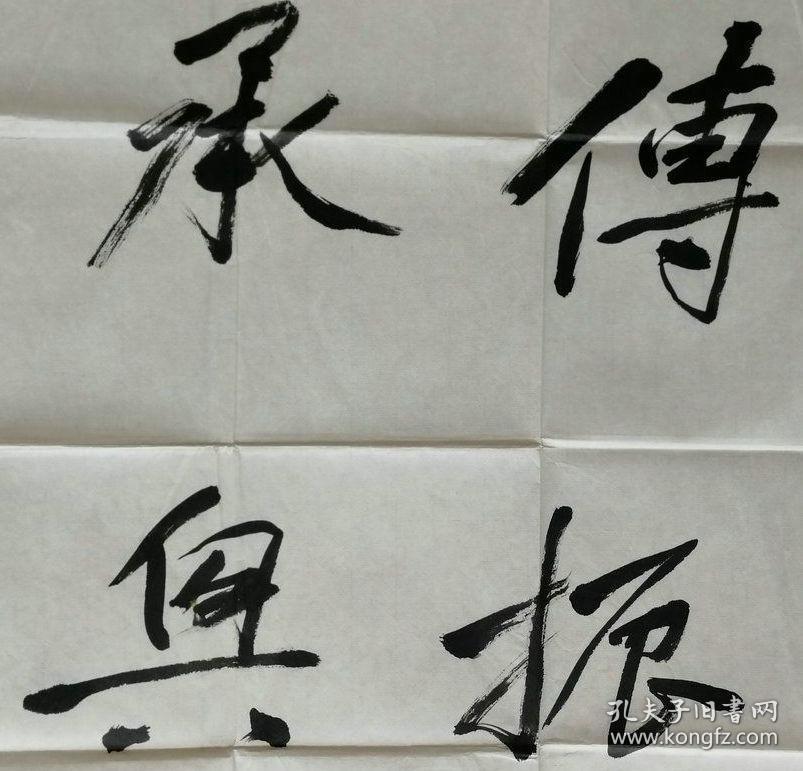 傳承
振興
孔夫子旧書网
www.kongfz.com